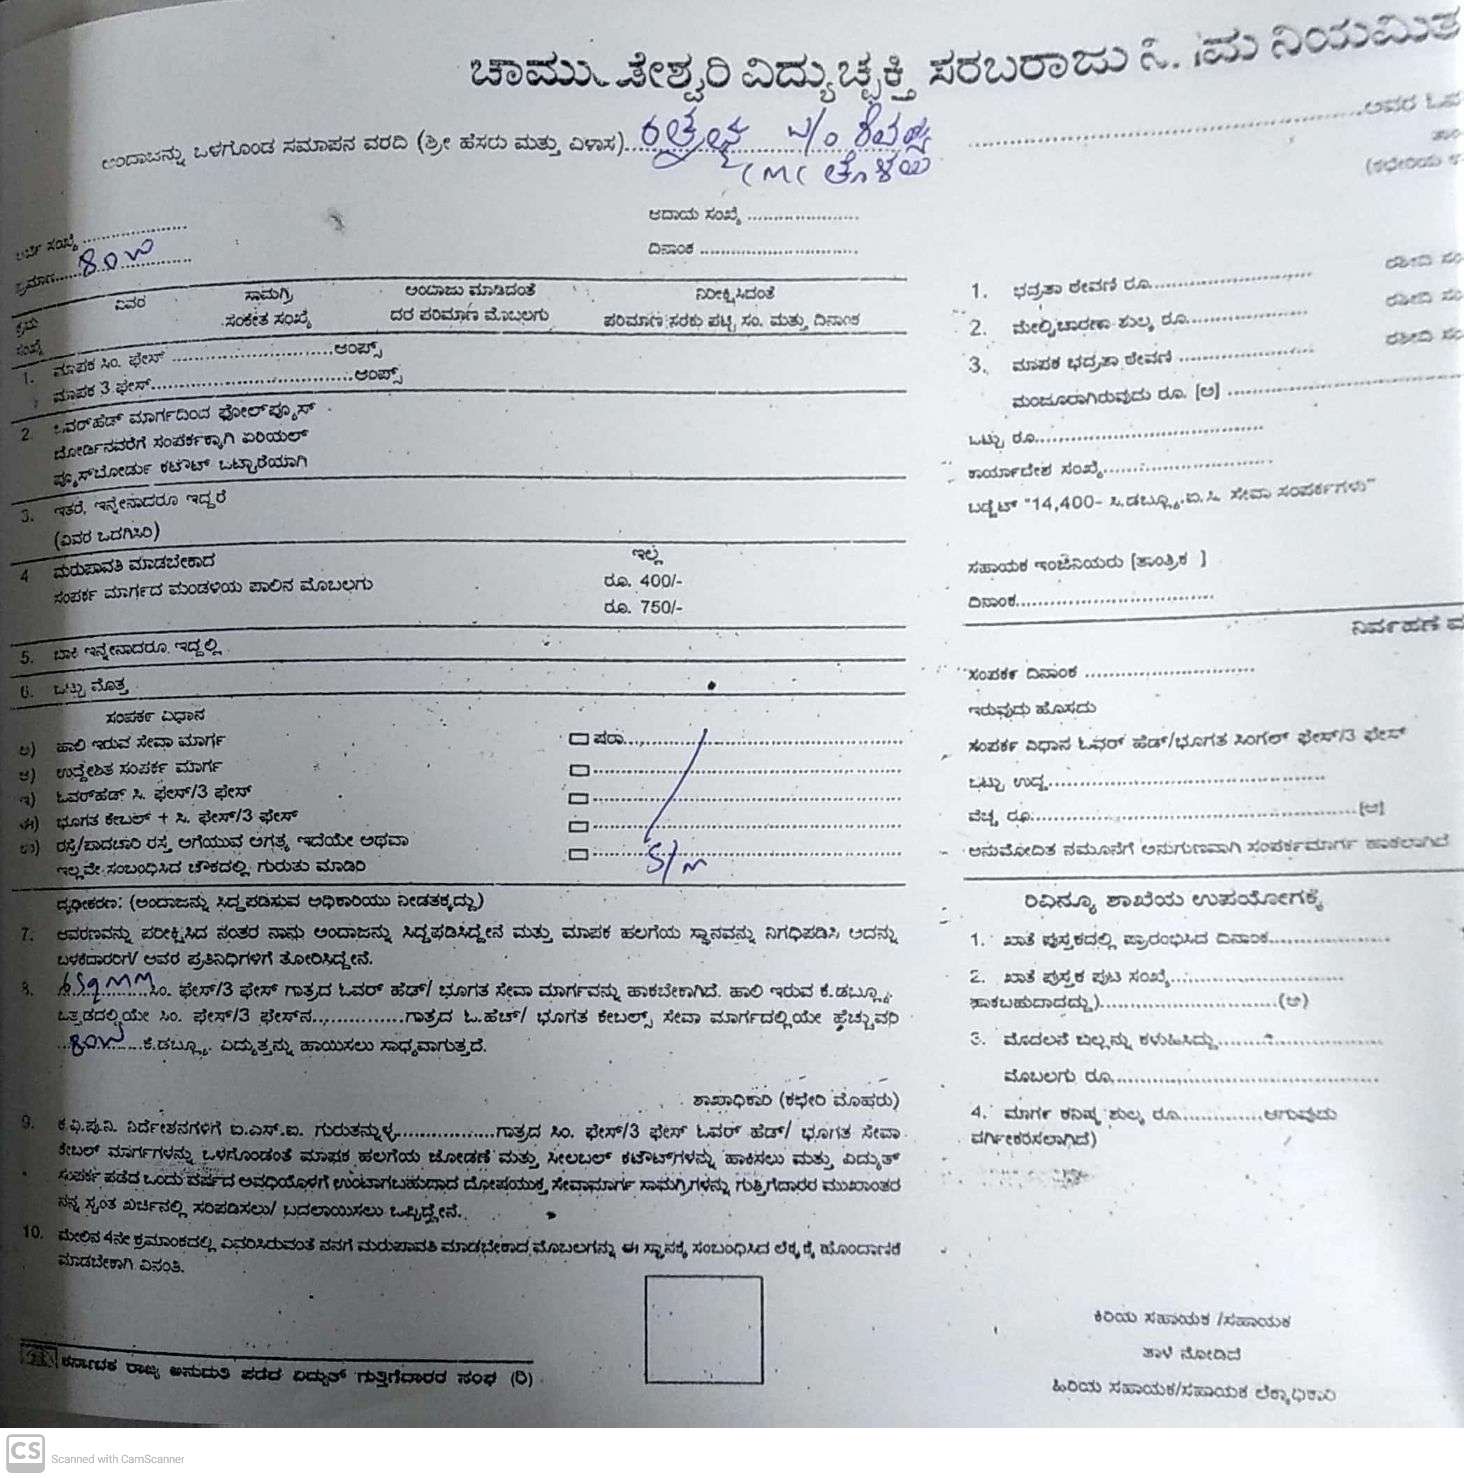 ವಿದ್ಯುಚ್ಛಕ್ತಿ ಸರಬರಾಜು ನಿಯಮಿತ
ಅಂದಾಜನ್ನು ಒಳಗೊಂಡ ಸಮಾಪನ ವರದಿ (ಶ್ರೀ ಹೆಸರು ಮತ್ತು ವಿಳಾಸ)............ಅವರ
ಆದಾಯ ಸಂಖ್ಯೆ ....................
ದಿನಾಂಕ ............................
ಅರ್ಜಿ ಸಂಖ್ಯೆ ....................
ಪ್ರಮಾಣ.....80W....................
ಕ್ರಮ ಸಂಖ್ಯೆ ವಿವರ ಸಾಮಗ್ರಿ ಸಂಕೇತ ಸಂಖ್ಯೆ ಅಂದಾಜು ಮಾಡಿದಂತೆ ದರ ಪರಿಮಾಣ ಮೊಬಲಗು ನಿರೀಕ್ಷಿಸಿದಂತೆ ಪರಿಮಾಣ ಸರಕು ಪಟ್ಟಿ ಸಂ. ಮತ್ತು ದಿನಾಂಕ
1. ಮಾಪಕ ಸಿಂ. ಫೇಸ್ ............................ಆಂಪ್ಸ್
ಮಾಪಕ 3 ಫೇಸ್....................................ಆಂಪ್ಸ್
2. ಓವರ್‌ಹೆಡ್ ಮಾರ್ಗದಿಂದ ಪೋಲ್‌ಫ್ಯೂಸ್
ಬೋರ್ಡಿನವರೆಗೆ ಸಂಪರ್ಕಕ್ಕಾಗಿ ಏರಿಯಲ್
ಫ್ಯೂಸ್‌ಬೋರ್ಡು ಕಟೌಟ್ ಒಟ್ಟಾರೆಯಾಗಿ
3. ಇತರೆ, ಇನ್ನೇನಾದರೂ ಇದ್ದರೆ
(ವಿವರ ಒದಗಿಸಿರಿ)
4 ಮರುಪಾವತಿ ಮಾಡಬೇಕಾದ ಇಲ್ಲ
ಸಂಪರ್ಕ ಮಾರ್ಗದ ಮಂಡಳಿಯ ಪಾಲಿನ ಮೊಬಲಗು ರೂ. 400/-
ರೂ. 750/-
5. ಬಾಕಿ ಇನ್ನೇನಾದರೂ ಇದ್ದಲ್ಲಿ
6. ಒಟ್ಟು ಮೊತ್ತ
ಸಂಪರ್ಕ ವಿಧಾನ
ಅ) ಹಾಲಿ ಇರುವ ಸೇವಾ ಮಾರ್ಗ ಷರಾ....................
ಆ) ಉದ್ದೇಶಿತ ಸಂಪರ್ಕ ಮಾರ್ಗ
ಇ) ಓವರ್‌ಹೆಡ್ ಸಿ. ಫೇಸ್/3 ಫೇಸ್
ಈ) ಭೂಗತ ಕೇಬಲ್ + ಸಿ. ಫೇಸ್/3 ಫೇಸ್
ಉ) ರಸ್ತೆ/ಪಾದಚಾರಿ ರಸ್ತೆ ಅಗೆಯುವ ಅಗತ್ಯ ಇದೆಯೇ ಅಥವಾ
ಇಲ್ಲವೇ ಸಂಬಂಧಿಸಿದ ಚೌಕದಲ್ಲಿ ಗುರುತು ಮಾಡಿರಿ
ದೃಢೀಕರಣ: (ಅಂದಾಜನ್ನು ಸಿದ್ಧಪಡಿಸುವ ಅಧಿಕಾರಿಯು ನೀಡತಕ್ಕದ್ದು)
7. ಆವರಣವನ್ನು ಪರೀಕ್ಷಿಸಿದ ನಂತರ ನಾನು ಅಂದಾಜನ್ನು ಸಿದ್ಧಪಡಿಸಿದ್ದೇನೆ ಮತ್ತು ಮಾಪಕ ಹಲಗೆಯ ಸ್ಥಾನವನ್ನು ನಿಗಧಿಪಡಿಸಿ ಅದನ್ನು
ಬಳಕೆದಾರರಿಗೆ/ ಅವರ ಪ್ರತಿನಿಧಿಗಳಿಗೆ ತೋರಿಸಿದ್ದೇನೆ.
8. 6Sqmm ಸಿಂ. ಫೇಸ್/3 ಫೇಸ್ ಗಾತ್ರದ ಓವರ್ ಹೆಡ್/ ಭೂಗತ ಸೇವಾ ಮಾರ್ಗವನ್ನು ಹಾಕಬೇಕಾಗಿದೆ. ಹಾಲಿ ಇರುವ ಕೆ.ಡಬ್ಲ್ಯೂ.
ಒತ್ತಡದಲ್ಲಿಯೇ ಸಿಂ. ಫೇಸ್/3 ಫೇಸ್‌ನ................ಗಾತ್ರದ ಓ.ಹೆಚ್/ ಭೂಗತ ಕೇಬಲ್ಸ್ ಸೇವಾ ಮಾರ್ಗದಲ್ಲಿಯೇ ಹೆಚ್ಚುವರಿ
...80W......ಕೆ.ಡಬ್ಲ್ಯೂ. ವಿದ್ಯುತ್ತನ್ನು ಹಾಯಿಸಲು ಸಾಧ್ಯವಾಗುತ್ತದೆ.
ಶಾಖಾಧಿಕಾರಿ (ಕಛೇರಿ ಮೊಹರು)
9. ಕ.ವಿ.ಪ್ರ.ನಿ. ನಿರ್ದೇಶನಗಳಿಗೆ ಐ.ಎಸ್.ಐ. ಗುರುತನ್ನುಳ್ಳ................ಗಾತ್ರದ ಸಿಂ. ಫೇಸ್/3 ಫೇಸ್ ಓವರ್ ಹೆಡ್/ ಭೂಗತ ಸೇವಾ
ಕೇಬಲ್ ಮಾರ್ಗಗಳನ್ನು ಒಳಗೊಂಡಂತೆ ಮಾಪಕ ಹಲಗೆಯ ಜೋಡಣೆ ಮತ್ತು ಸೀಲಬಲ್ ಕಟೌಟ್‌ಗಳನ್ನು ಹಾಕಿಸಲು ಮತ್ತು ವಿದ್ಯುತ್
ಸಂಪರ್ಕ ಪಡೆದ ಒಂದು ವರ್ಷದ ಅವಧಿಯೊಳಗೆ ಉಂಟಾಗಬಹುದಾದ ದೋಷಯುಕ್ತ ಸೇವಾಮಾರ್ಗ ಸಾಮಗ್ರಿಗಳನ್ನು ಗುತ್ತಿಗೆದಾರರ ಮುಖಾಂತರ
ನನ್ನ ಸ್ವಂತ ಖರ್ಚಿನಲ್ಲಿ ಸರಿಪಡಿಸಲು/ ಬದಲಾಯಿಸಲು ಒಪ್ಪಿದ್ದೇನೆ.
10. ಮೇಲಿನ 4ನೇ ಕ್ರಮಾಂಕದಲ್ಲಿ ವಿವರಿಸಿರುವಂತೆ ನನಗೆ ಮರುಪಾವತಿ ಮಾಡಬೇಕಾದ ಮೊಬಲಗನ್ನು ಈ ಸ್ಥಾನಕ್ಕೆ ಸಂಬಂಧಿಸಿದ ಲೆಕ್ಕಕ್ಕೆ ಹೊಂದಾಣಿಕೆ
ಮಾಡಬೇಕಾಗಿ ವಿನಂತಿ.
ಕರ್ನಾಟಕ ರಾಜ್ಯ ಅನುಮತಿ ಪಡೆದ ವಿದ್ಯುತ್ ಗುತ್ತಿಗೆದಾರರ ಸಂಘ (ರಿ)
1. ಭದ್ರತಾ ಠೇವಣಿ ರೂ.................... ರಶೀದಿ ಸಂ
2. ಮೇಲ್ವಿಚಾರಣಾ ಶುಲ್ಕ ರೂ.................... ರಶೀದಿ ಸಂ
3. ಮಾಪಕ ಭದ್ರತಾ ಠೇವಣಿ .................... ರಶೀದಿ ಸಂ
ಮಂಜೂರಾಗಿರುವುದು ರೂ. [ಅ] ....................
ಒಟ್ಟು ರೂ....................
ಕಾರ್ಯಾದೇಶ ಸಂಖ್ಯೆ....................
ಬಡ್ಜೆಟ್ "14,400- ಸಿ.ಡಬ್ಲ್ಯೂ.ಐ.ಸಿ. ಸೇವಾ ಸಂಪರ್ಕಗಳು"
ಸಹಾಯಕ ಇಂಜಿನಿಯರು [ತಾಂತ್ರಿಕ ]
ದಿನಾಂಕ....................
ನಿರ್ವಹಣೆ
ಸಂಪರ್ಕ ದಿನಾಂಕ ....................
ಇರುವುದು ಹೊಸದು
ಸಂಪರ್ಕ ವಿಧಾನ ಓವರ್ ಹೆಡ್/ಭೂಗತ ಸಿಂಗಲ್ ಫೇಸ್/3 ಫೇಸ್
ಒಟ್ಟು ಉದ್ದ....................
ವೆಚ್ಚ ರೂ....................[ಅ]
ಅನುಮೋದಿತ ನಮೂನೆಗೆ ಅನುಗುಣವಾಗಿ ಸಂಪರ್ಕಮಾರ್ಗ ಹಾಕಲಾಗಿದೆ
ರಿವಿನ್ಯೂ ಶಾಖೆಯ ಉಪಯೋಗಕ್ಕೆ
1. ಖಾತೆ ಪುಸ್ತಕದಲ್ಲಿ ಪ್ರಾರಂಭಿಸಿದ ದಿನಾಂಕ....................
2. ಖಾತೆ ಪುಸ್ತಕ ಪುಟ ಸಂಖ್ಯೆ....................
ಹಾಕಬಹುದಾದದ್ದು)....................(ಅ)
3. ಮೊದಲನೆ ಬಿಲ್ಲನ್ನು ಕಳುಹಿಸಿದ್ದು....................
ಮೊಬಲಗು ರೂ....................
4. ಮಾರ್ಗ ಕನಿಷ್ಠ ಶುಲ್ಕ ರೂ.............ಆಗುವುದು
ವರ್ಗೀಕರಿಸಲಾಗಿದೆ)
ಕಿರಿಯ ಸಹಾಯಕ /ಸಹಾಯಕ
ತಾಳೆ ನೋಡಿದೆ
ಹಿರಿಯ ಸಹಾಯಕ/ಸಹಾಯಕ ಲೆಕ್ಕಾಧಿಕಾರಿ
CS Scanned with CamScanner